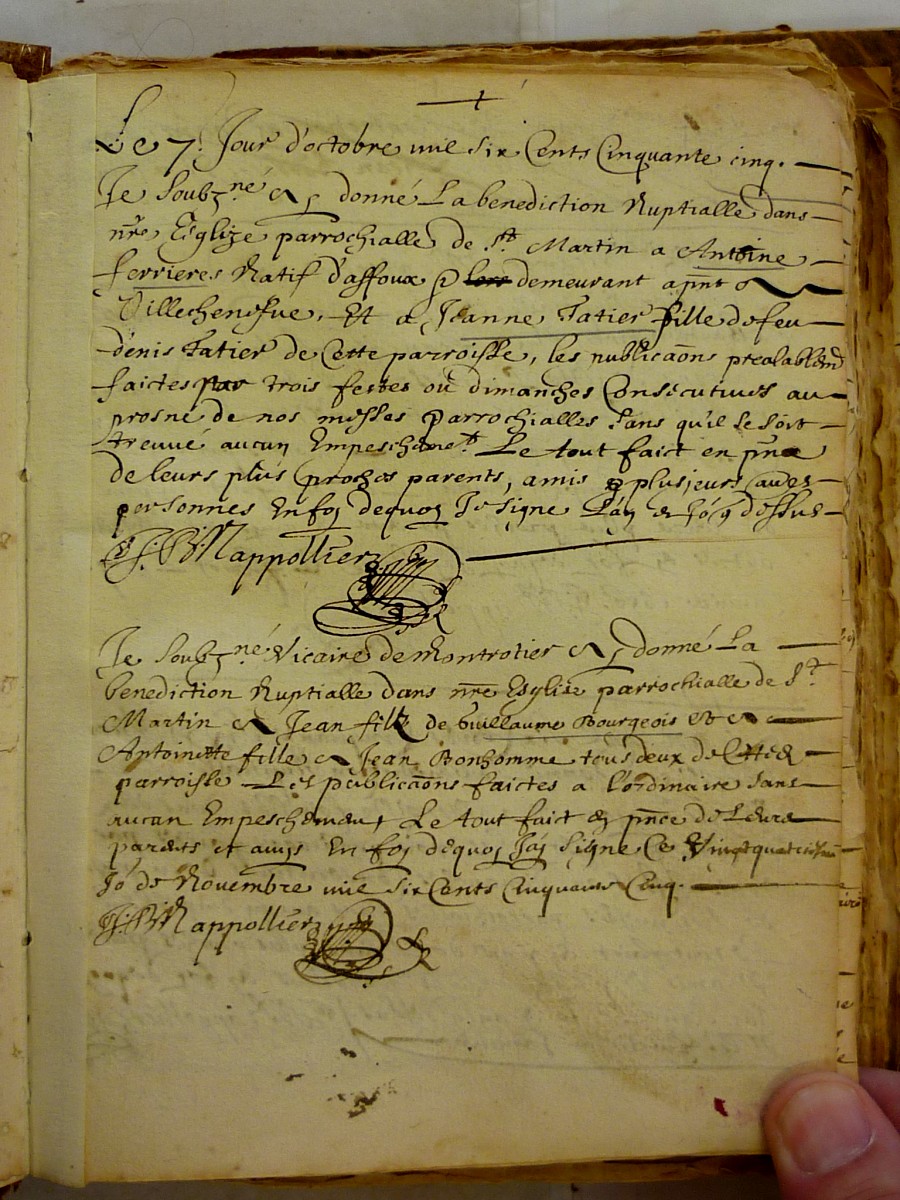 +
Le 7. Jour d'octobre mil six Cents Cinquante cinq.
Je Soubzne ay donné La benediction Nuptialle dans
nre Esglize parrochialle de St Martin a Antoine
ferrieres Natif d'affoux demeurant a pnt a
Villechenefve, Et a Jeanne Tatier fille de feu
denis Tatier de Cette parroisse, les publicaons prealablemt
faictes par trois festes ou dimanches Consecutives au
prosne de nos messes parrochialles sans qu'il se soit
treuvé aucun Empeschemt. Le tout faict en pnce
de leurs plus proches parents, amis & plusieurs aultres
personnes En foy dequoy Je signe L'an & Jo' dessus
Mappollier
Je Soubzné Vicaire de Montrotier ay donné La
benediction Nuptialle dans nre Esglize parrochialle de St
Martin a Jean filz de Guillaume Bourgeois et a
Antoinette fille a Jean Bonhomme tous deux de Cette
parroisse Les publicaons faictes a l'ordinaire sans
aucun Empeschement Le tout faict en pnce de Leurs
parents et amys En foy dequoy J'ay Signé Ce Vingtquatriesme
Jo' de Novembre mil six Cents Cinquante Cinq.
Mappollier